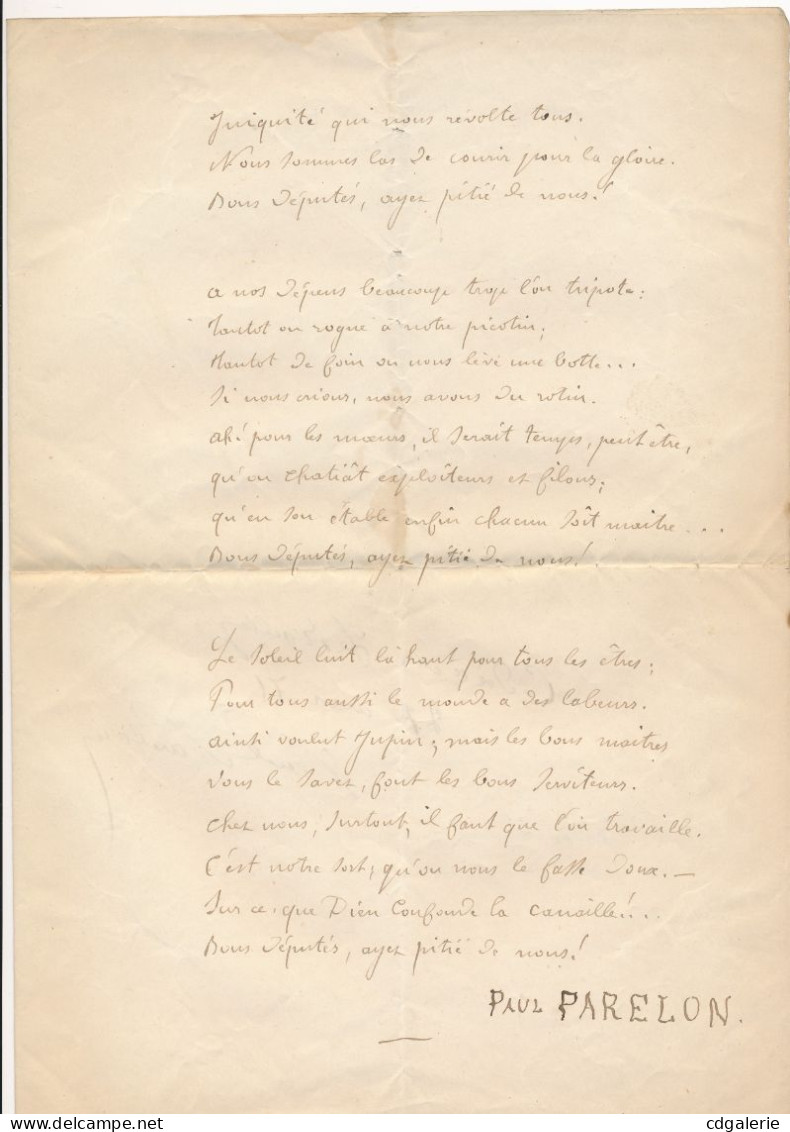 Iniquité qui nous révolte tous.
Nous sommes las de courir pour la gloire.
Bons Députés, ayez pitié de nous!
a nos dépens beaucoup trop l'on tripote;
Tantot on rogne à notre picotin;
Tantot de foin on nous lève une botte...
Si nous crions, nous avons du rotin.
ah! pour les mœurs, il serait temps, peut être,
qu'on chatiât exploiteurs et filous;
qu'en son étable enfin chacun soit maitre...
Bons Députés, ayez pitié de nous!
Le soleil luit là haut pour tous les êtres;
Pour tous aussi le monde a des labeurs.
ainsi voulut Jupin; mais les bons maitres
Vous le savez, font les bons serviteurs.
Chez nous, surtout, il faut que l'on travaille.
C'est notre sort; qu'on nous le fasse doux.—
Sur ce, que Dieu confonde la canaille!..
Bons Députés, ayez pitié de nous!
PAUL PARELON.
www.delcampe.net
cdgalerie